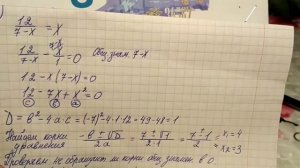 12/(7-x) = x
12/(7-x) - x/1 = 0   Общ. знам. 7-x
12 - x(7-x) = 0
12 - 7x + x² = 0
c b a
D = b² - 4ac = (-7)² - 4·1·12 = 49 - 48 = 1
Найдём корни уравнения (-b ± √D)/2a = (7 ± √1)/(2·1) = (7 ± 1)/2 = x₁ = 4
x₂ = 3
Проверяем не обращают ли корни общ. знамен. в 0